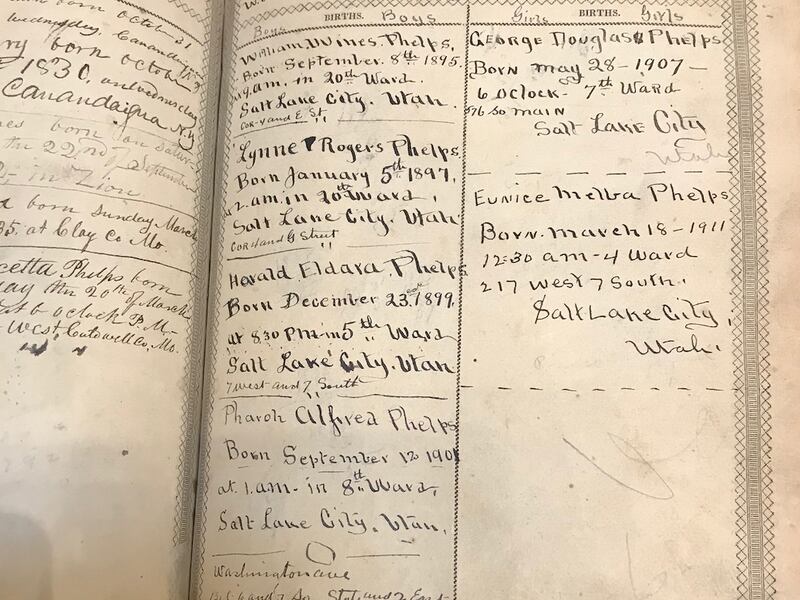 born October 31
Wednesday, Canandaigua
born October
1830, on Wednesday
Canandaigua N.Y.
born on Satur-
the 22nd of September
in Zion
born Sunday March
35. at Clay Co Mo.
cetta Phelps born
day the 20th of March
at 6 oclock P.M-
West, Caldwell Co, Mo.
BIRTHS. Boys
Boys
William Wines Phelps,
Born September 8th 1895.
at 9. a.m. in 20th Ward.
Salt Lake City. Utah.
Cor-4 and E St.
Lynne Rogers Phelps
Born January 5th 1897,
at 2. a.m. in 20th Ward,
Salt Lake City, Utah
Cor 4 and G Street
Harald Eldara Phelps
Born December 23. 1899.
at 8.30 P.M. in 5th Ward
Salt Lake City, Utah
7 West and 7 South
Pharoh Alfred Phelps
Born September 12 190
at 1. am- in 8th Ward,
Salt Lake City. Utah.
Washington ave
Bet 6 and 7 So State and 2 East
Girls BIRTHS. Girls
George Douglass Phelps
Born may 28-1907-
6 oclock- 7th Ward
76 So main
Salt Lake City
Utah
Eunice Melba Phelps
Born. march 18-1911
12:30 am-4 Ward
217 West 7 South.
Salt Lake City,
Utah.